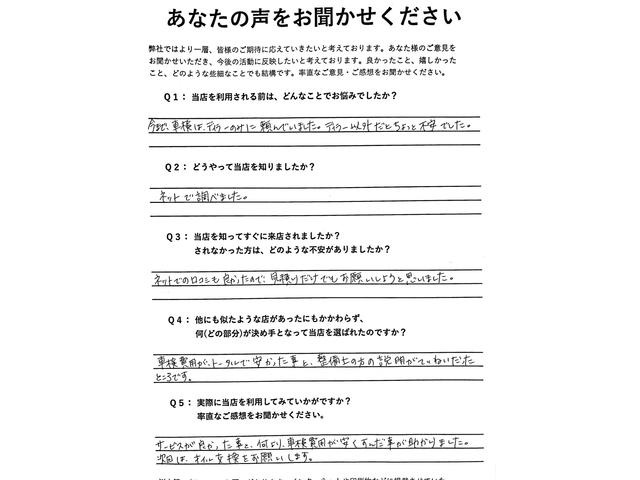 あなたの声をお聞かせください
弊社ではより一層、皆様のご期待に応えていきたいと考えております。あなた様のご意見を
お聞かせいただき、今後の活動に反映したいと考えております。良かったこと、嬉しかった
こと、どのような些細なことでも結構です。率直なご意見・ご感想をお聞かせください。
Q1：当店を利用される前は、どんなことでお悩みでしたか？
今まで、車検は、ディーラーのみに頼んでいました。ディーラー以外だとちょっと不安でした。
Q2：どうやって当店を知りましたか？
ネットで調べました。
Q3：当店を知ってすぐに来店されましたか？
されなかった方は、どのような不安がありましたか？
ネットでの口コミも良かったので、見積りだけでもお願いしようと思いました。
Q4：他にも似たような店があったにもかかわらず、
何(どの部分)が決め手となって当店を選ばれたのですか？
車検費用が、トータルで安かった事と、整備士の方の説明がていねいだった
ところです。
Q5：実際に当店を利用してみていかがですか？
率直なご感想をお聞かせください。
サービスが良かった事と、何より、車検費用が安くすんだ事が助かりました。
次回は、オイル交換をお願いします。